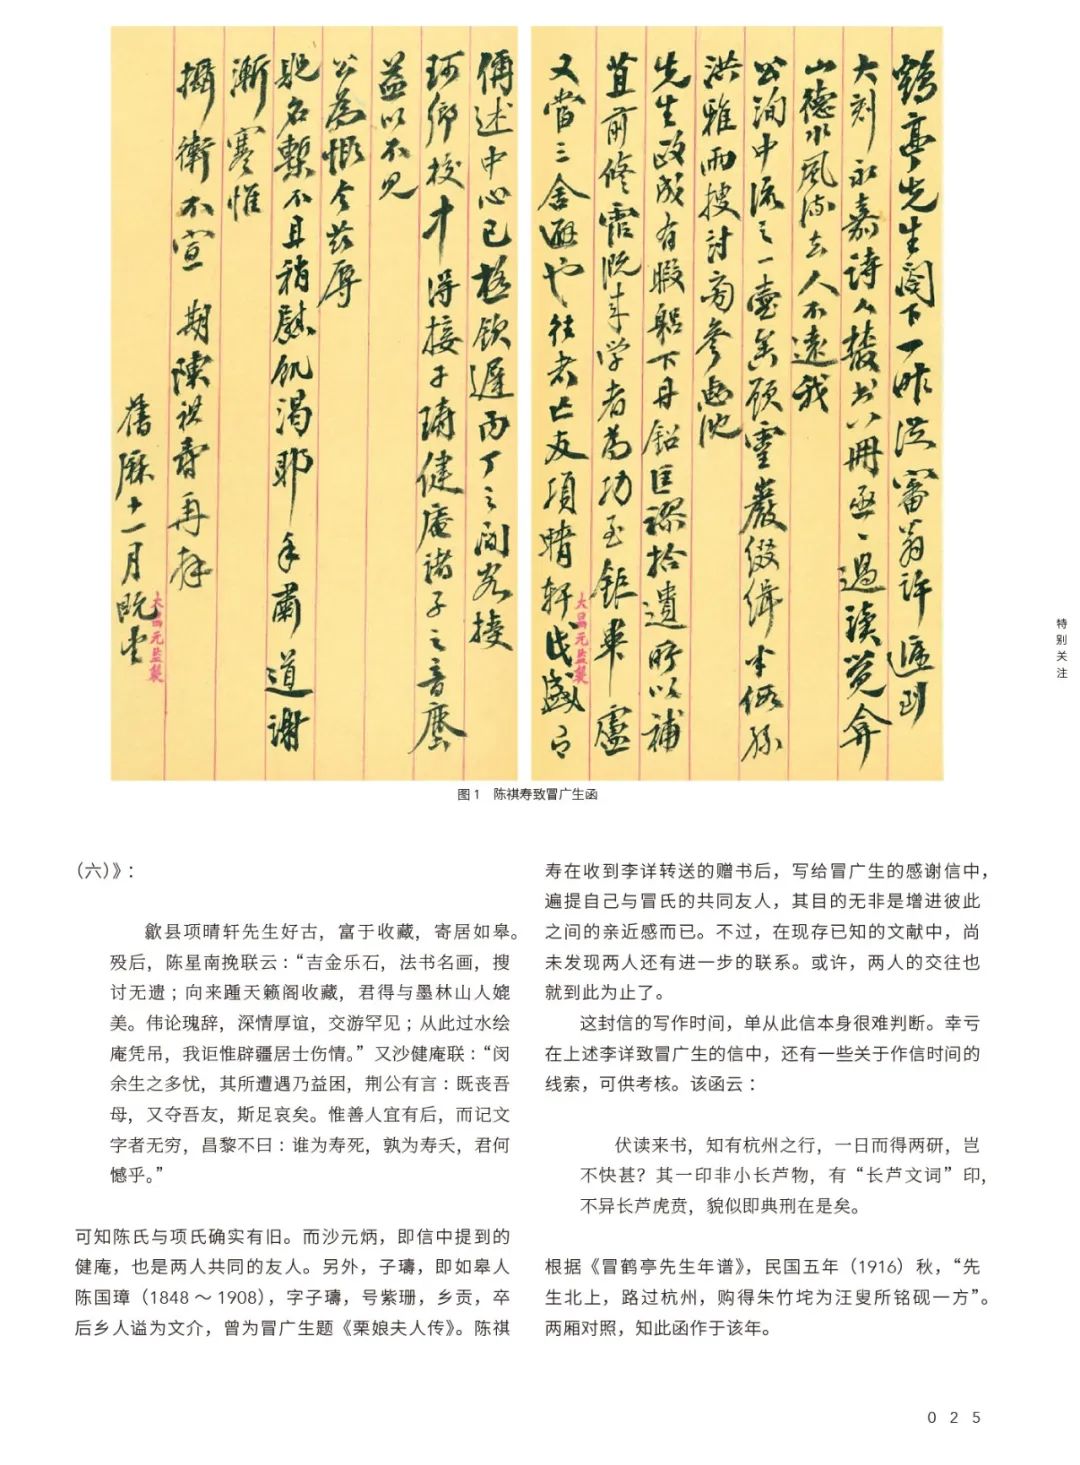 鶴亭先生閣下一昨從審翁許遞到
大刻永嘉詩人叢书八冊亟亟過讀覺弇
山德水風流去人不遠我
公洵中流之一壺矣顧靈巖綴緝半
洪雅雨搜討商參幽沈
先生政成有暇躬下丹鉛匡謬拾遺所以補
苴前修霑溉来学者為功至鉅畢盧
又當三舍避也往者亡友項晴軒盛口
大昌元監製
傳述中心已極欽遲丙丁之間忝接
珂鄉校才得接子璹健庵諸子之音塵
益以不见
公為慨今茲辱
貺名槧不且稍慰飢渴耶手肅道謝
漸寒惟
攝衛不宣 期陳祺壽再拜
舊厤十一月既望
大昌元監製
图1 陈祺寿致冒广生函
特别关注
（六）》：
歙县项晴轩先生好古，富于收藏，寄居如皋。
殁后，陈星南挽联云：“吉金乐石，法书名画，搜
讨无遗；向来踵天籁阁收藏，君得与墨林山人媲
美。伟论瑰辞，深情厚谊，交游罕见；从此过水绘
庵凭吊，我讵惟辟疆居士伤情。”又沙健庵联：“闵
余生之多忧，其所遭遇乃益困，荆公有言：既丧吾
母，又夺吾友，斯足哀矣。惟善人宜有后，而记文
字者无穷，昌黎不曰：谁为寿死，孰为寿夭，君何
憾乎。”
可知陈氏与项氏确实有旧。而沙元炳，即信中提到的
健庵，也是两人共同的友人。另外，子璹，即如皋人
陈国璋（1848～1908），字子璹，号紫珊，乡贡，卒
后乡人谥为文介，曾为冒广生题《栗娘夫人传》。陈祺
寿在收到李详转送的赠书后，写给冒广生的感谢信中，
遍提自己与冒氏的共同友人，其目的无非是增进彼此
之间的亲近感而已。不过，在现存已知的文献中，尚
未发现两人还有进一步的联系。或许，两人的交往也
就到此为止了。
这封信的写作时间，单从此信本身很难判断。幸亏
在上述李详致冒广生的信中，还有一些关于作信时间的
线索，可供考核。该函云：
伏读来书，知有杭州之行，一日而得两研，岂
不快甚？其一印非小长芦物，有“长芦文词”印，
不异长芦虎贲，貌似即典刑在是矣。
根据《冒鹤亭先生年谱》，民国五年（1916）秋，“先
生北上，路过杭州，购得朱竹垞为汪叟所铭砚一方”。
两厢对照，知此函作于该年。
025